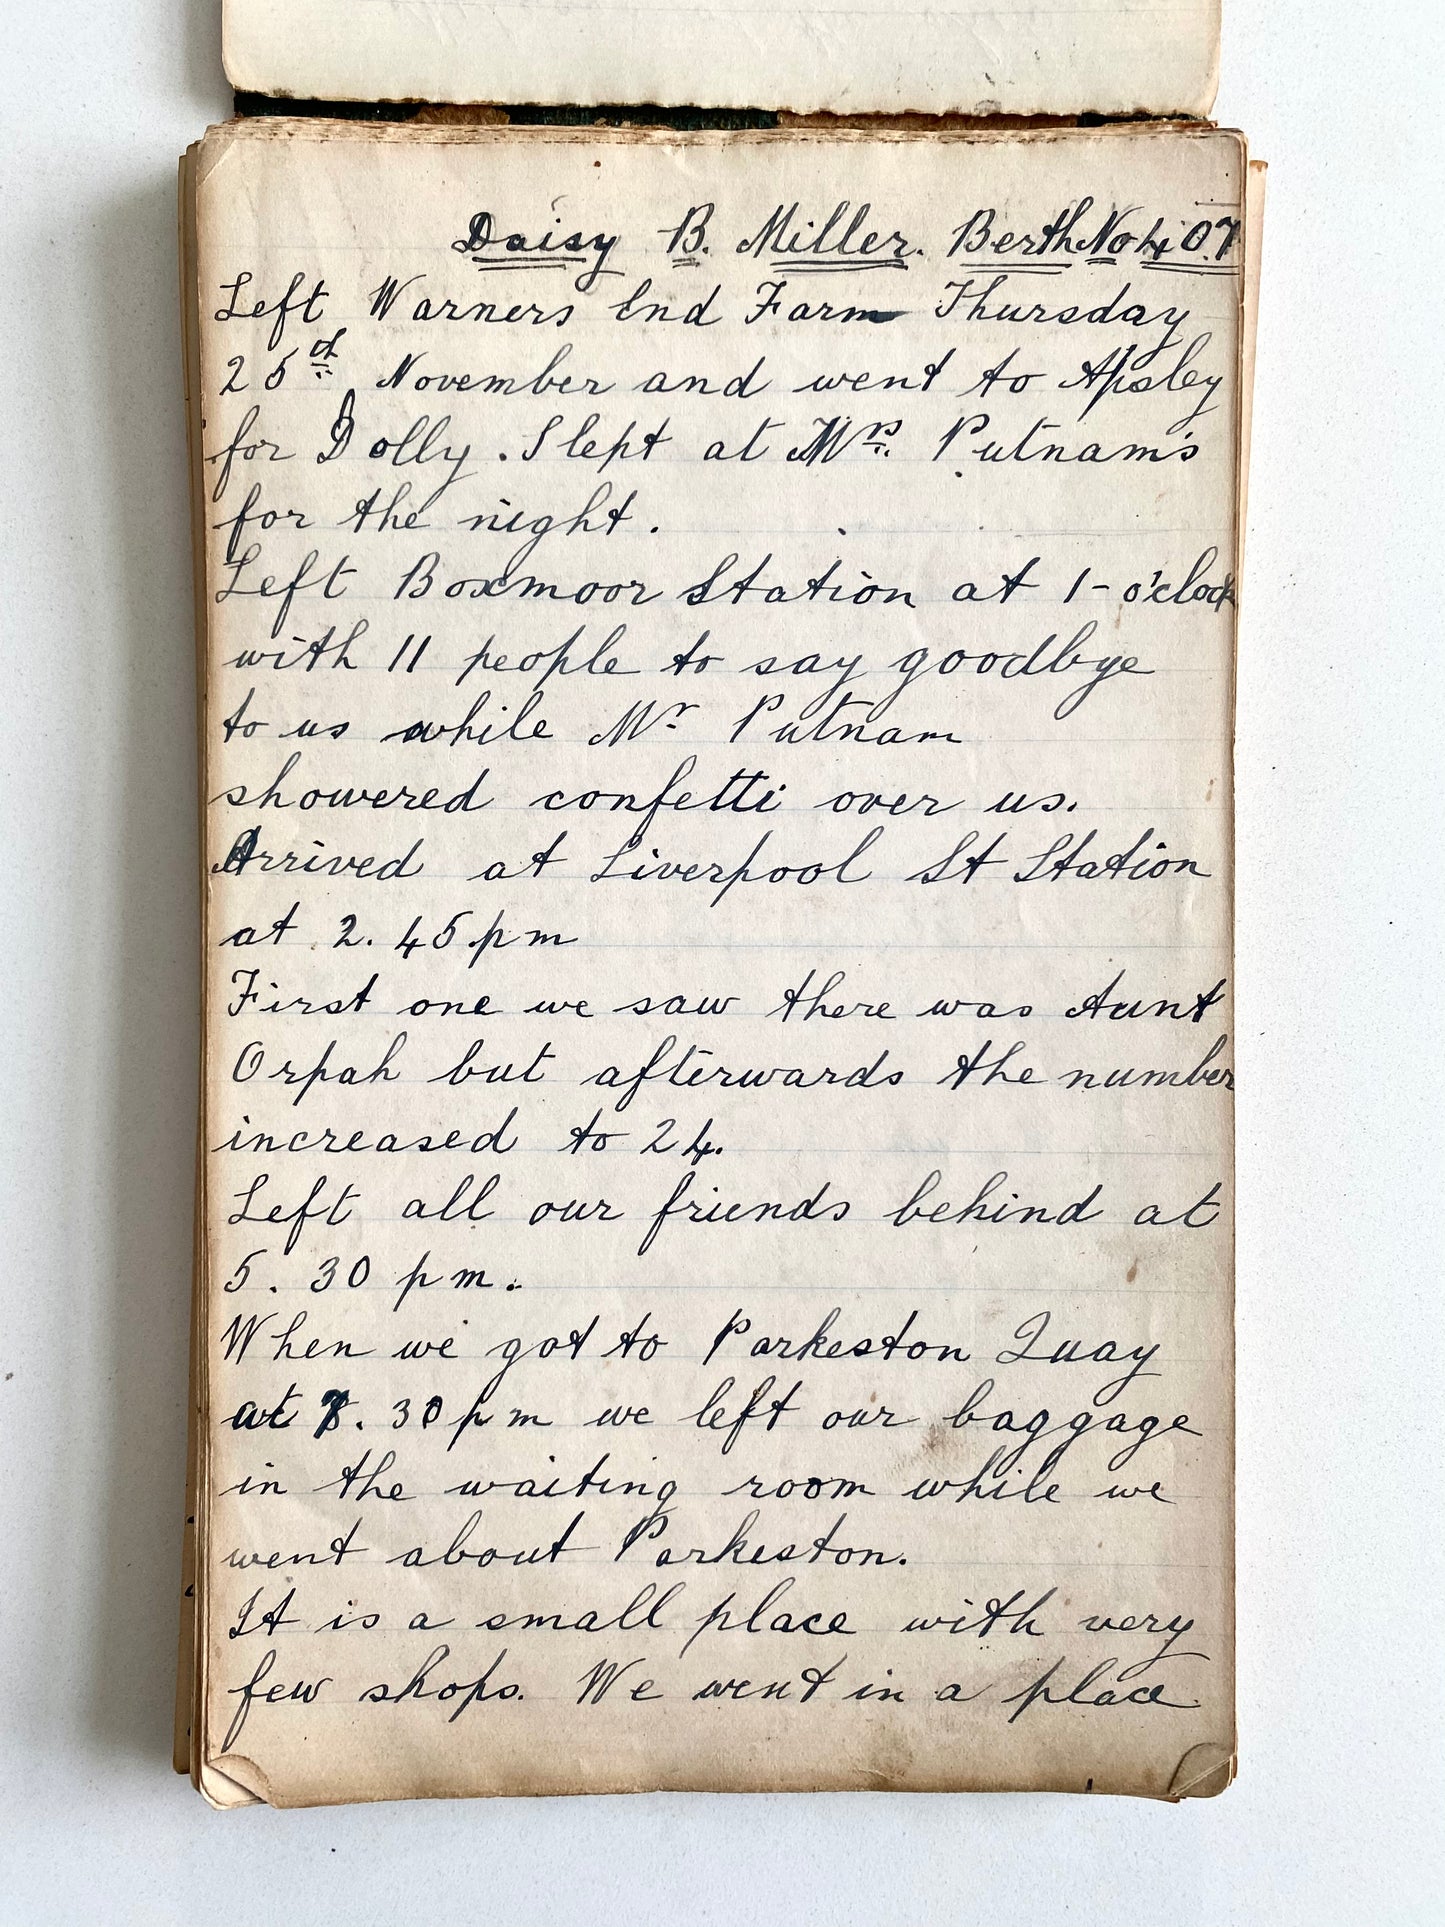 Daisy B. Miller. Berth No 407
Left Warners End Farm Thursday
25th November and went to Apsley
for Dolly. Slept at Mrs. Putnam's
for the night.
Left Boxmoor Station at 1-o'clock
with 11 people to say goodbye
to us while Mr Putnam
showered confetti over us.
Arrived at Liverpool St Station
at 2.45 pm
First one we saw there was Aunt
Orpah but afterwards the number
increased to 24.
Left all our friends behind at
5.30 pm.
When we got to Parkeston Quay
at 7.30 pm we left our baggage
in the waiting room while we
went about Parkeston.
It is a small place with very
few shops. We went in a place